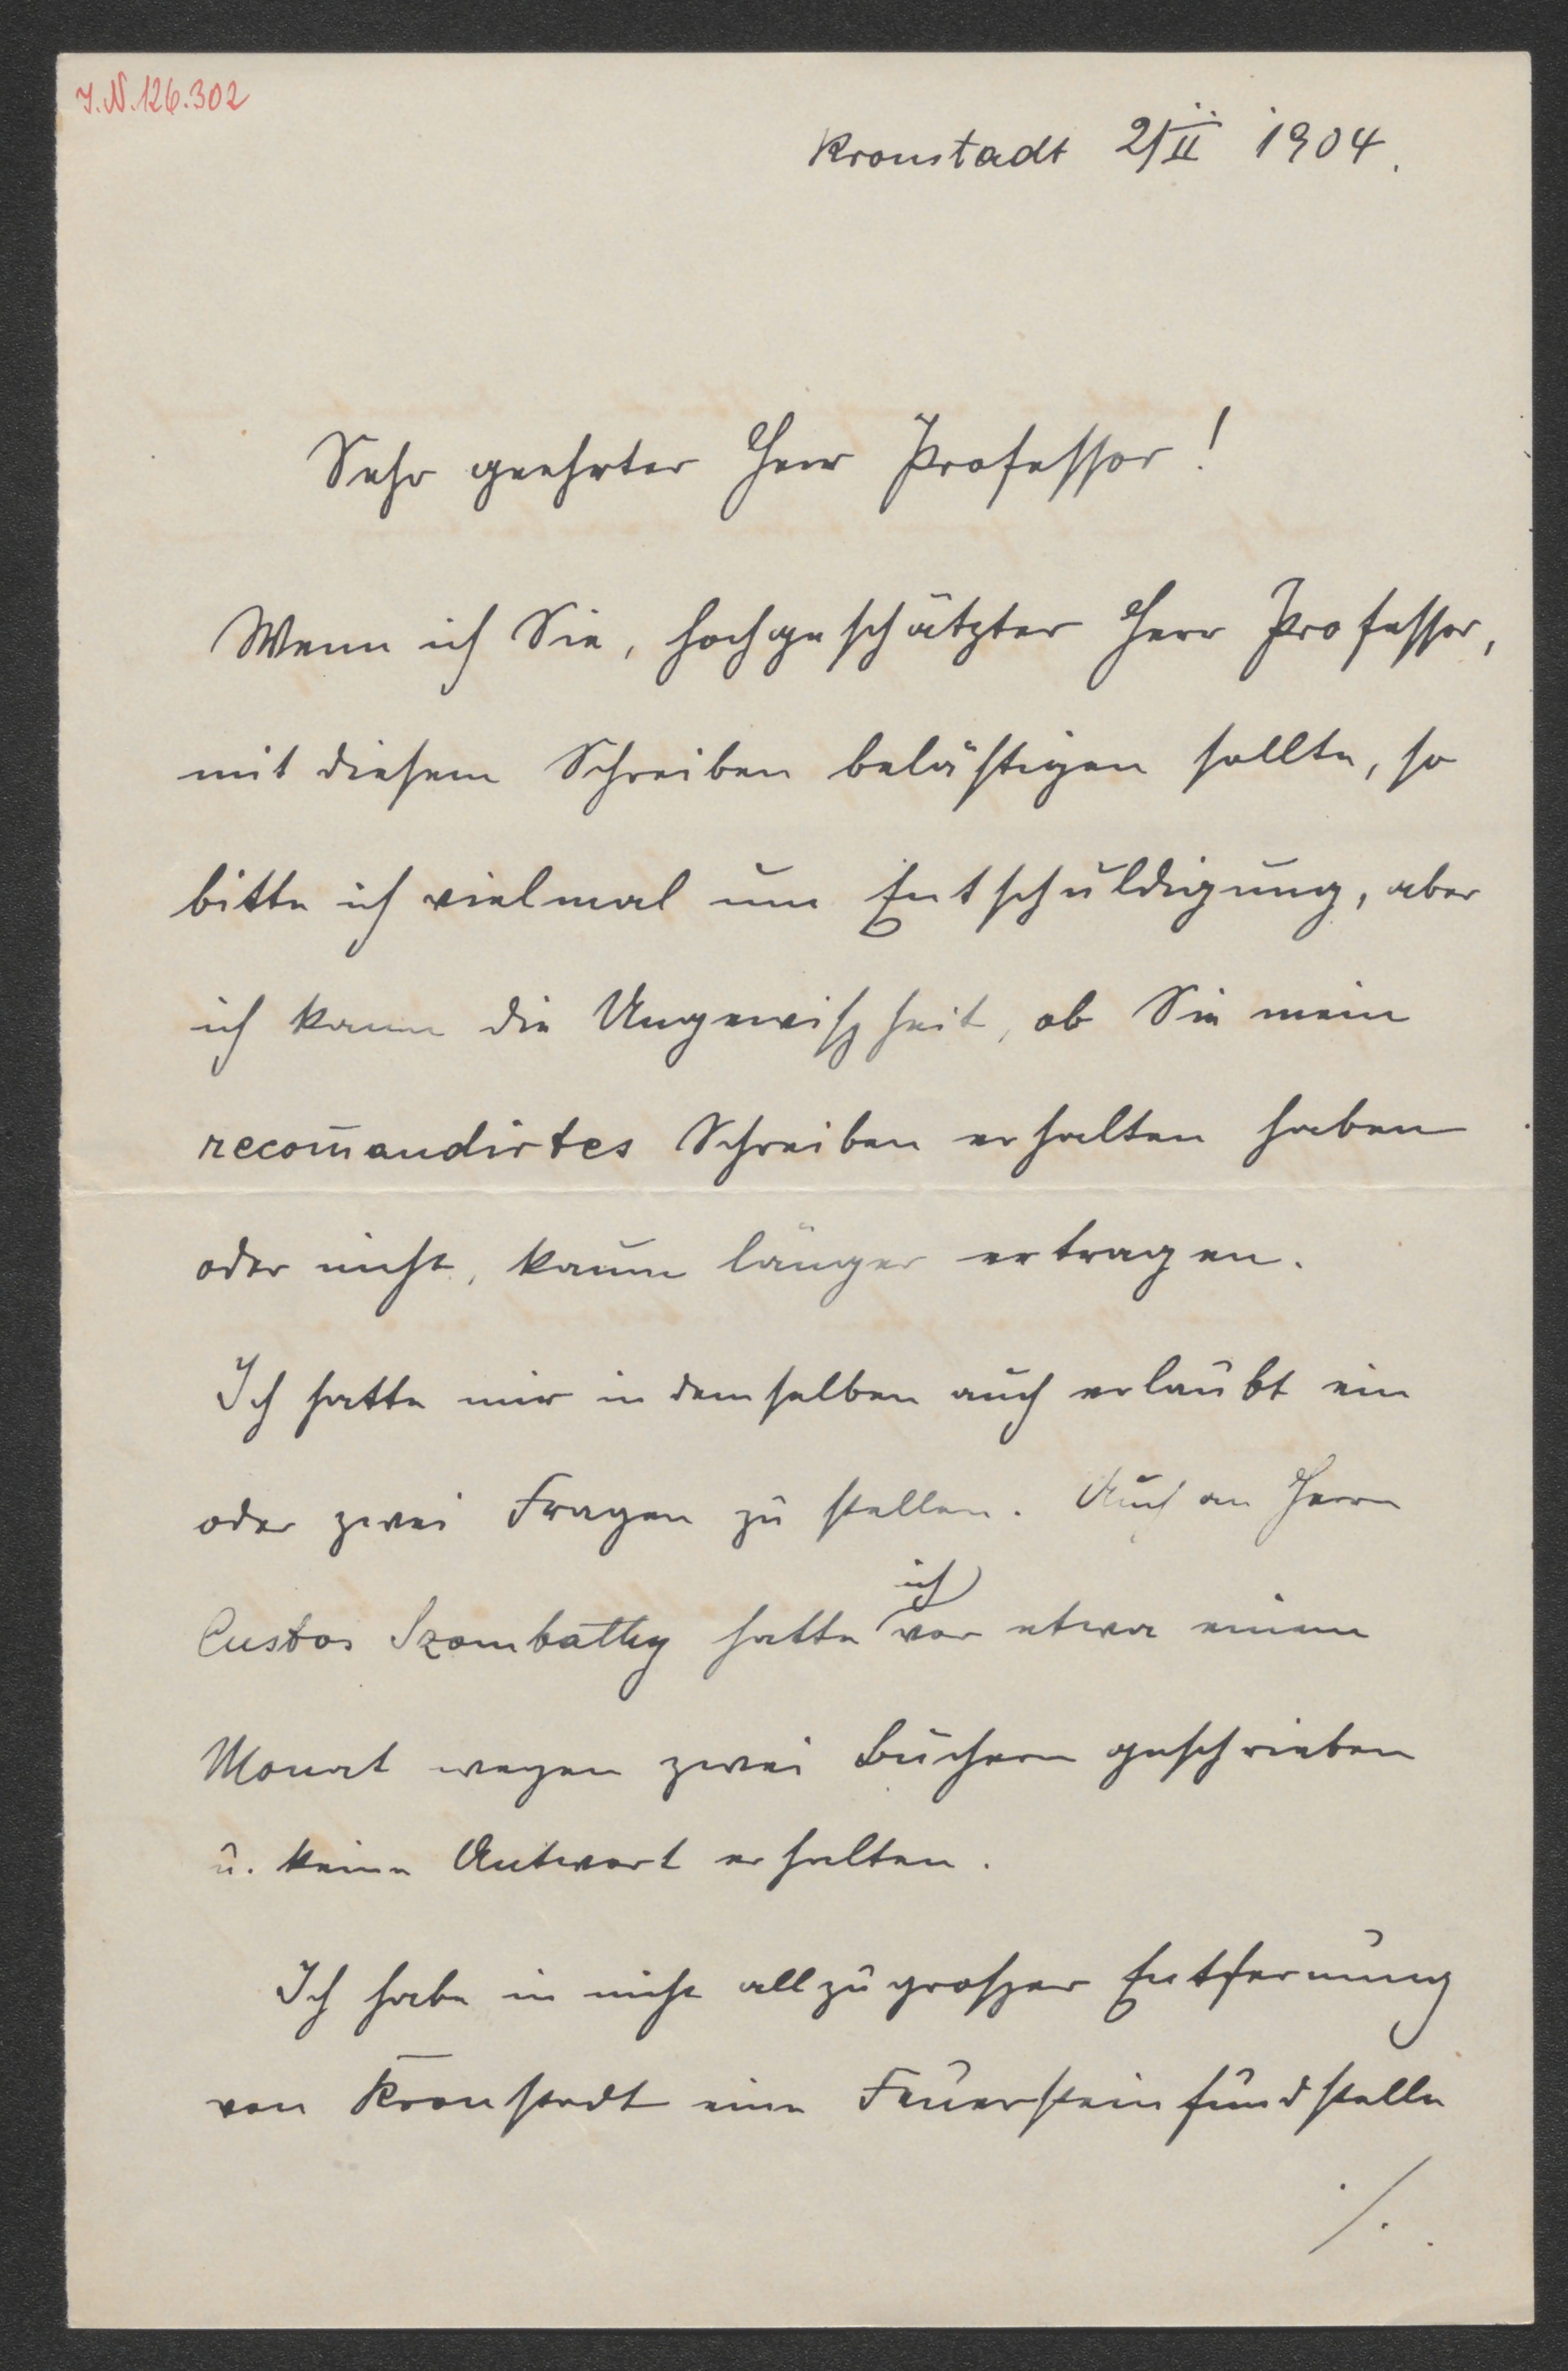 J.N. 126.302
Kronstadt 2/II 1904.
Sehr geehrter Herr Professor!
Wenn ich Sie, hochgeschätzter Herr Professor,
mit diesem Schreiben belästigen sollte, so
bitte ich vielmal um Entschuldigung, aber
ich kann die Ungewißheit, ob Sie mein
recom̄andirtes Schreiben erhalten haben
oder nicht, kaum länger ertragen.
Ich hatte mir in demselben auch erlaubt ein
oder zwei Fragen zu stellen. Auch an Herrn
ich
Custos Szombathy hatte vor etwa einem
Monat wegen zwei Büchern geschrieben
u. keine Antwort erhalten.
Ich habe in nicht allzugroßer Entfernung
von Kronstadt eine Feuersteinfundstelle
./.